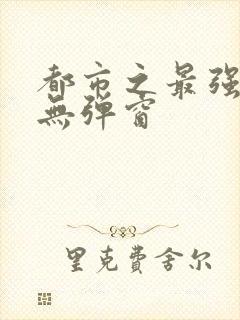 都市之最强
無弹窗
里克費舍尔